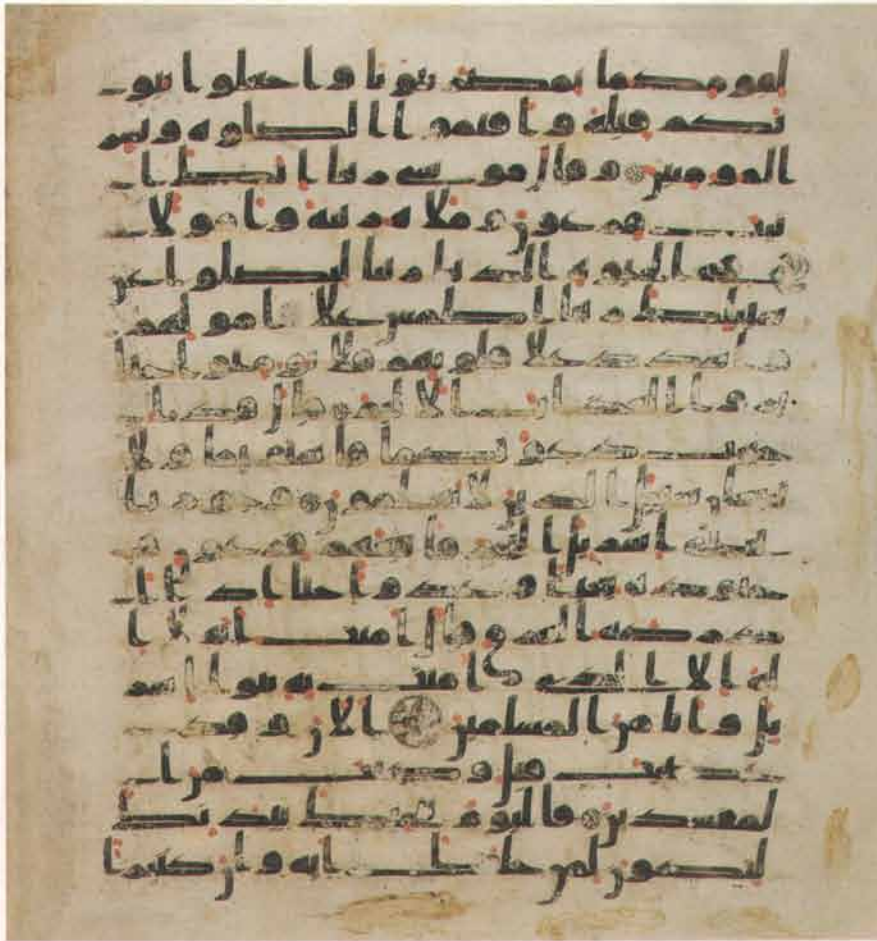 لقومكما بمصر بيوتا واجعلوا بيو
تكم قبلة واقيموا الصلوة وبشر
المومنين وقال موسى ربنا انك ا
تيت فرعون وملاه زينة واموالا
في الحيوة الدنيا ربنا ليضلوا عن
سبيلك ربنا اطمس على اموالهم
واشدد على قلوبهم فلا يومنوا حتى
يروا العذاب الاليم قال قد ا
جيبت دعوتكما فاستقيما ولا
تتبعان سبيل الذين لا يعلمون وجوزنا
ببني اسريل البحر فاتبعهم فرعون و
جنوده بغيا وعدوا حتى اذا ا
دركه الغرق قال امنت انه لا ا
له الا الذي امنت به بنوا اسر
يل وانا من المسلمين الن وقد
عصيت قبل وكنت من ا
لمفسدين فاليوم ننجيك ببدنك
لتكون لمن خلفك اية وان كثيرا